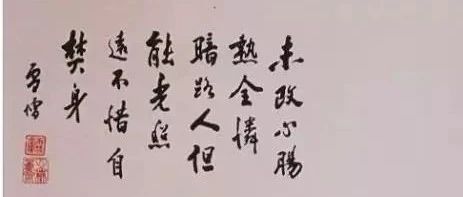 未改心腸
熱全憐
暗路人但
能光照
遠不惜自
焚身
雪儒